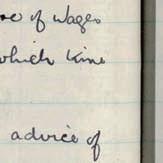 of wages
which time
advice of